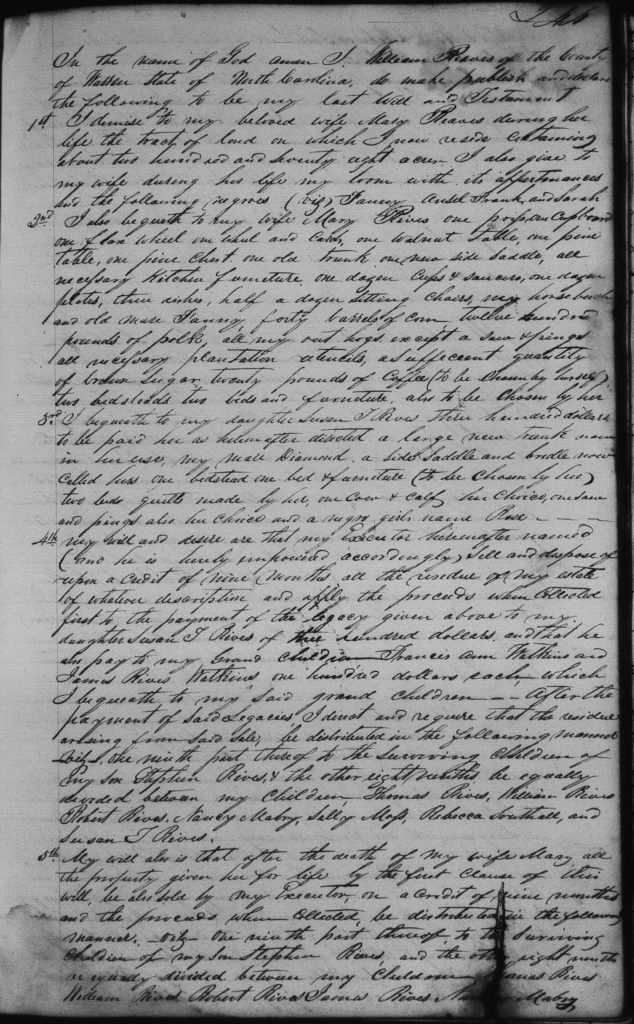 In the name of God amen I. William Reaves of the County
of Warren State of North Carolina, do make publish and declare
the following to be my last Will and Testament
1st I demise to my beloved wife Mary Reaves during her
life the tract of land on which I now reside containing
about two hundred and seventy eight acres I also give to
my wife during her life my loom with its appertenances
and the following negroes (viz) Fanny Ansel Frank, and Sarah
2nd I also bequath to my wife Mary Rives one Cupboard
one flax wheel one and Cards, one Walnut Table, one pine
table, one pine Chest one old trunk one new side Saddle, all
necessary Kitchen furneture, one dozen Cups & saucers, one dozen
plates, three dishes, half a dozen sitting Chairs, my horse
and old mare Fanny, forty barrels of corn twelve hundred
pounds of polk, all my out hogs except a sow & pings
all necessary plantation utencils, a suffecient quantity
of brown Sugar twenty pounds of Coffee (to be Chosen by herself)
two bedsteads two beds and furneture, also to be Chosen by her
3rd I bequeath to my daughter Susan T Rives three hundred dollars
to be paid her as hereinafter directed a large new trunk now
in her use, my mare Diamond a side Saddle and bridle now
Called hers one bedstead one bed & furneture (to be Chosen by her)
two beds quilts made by her, one Cow & Calf her Choice, one sow
and pings also her Choice and a negro girl name Rose - - - -
4th my will and desire are that my Executor hereinafter named
(and he is hereby impowered accordingly) Sell and dispose of
upon a credit of nine months all the residue of my estate
of whatever description and apply the proceeds when Collected
first to the payment of the legacy given above to my
daughter Susan T Rives of three hundred dollars and that he
also pay to my Grand Children Francis Ann Watkins and
James Rives Watkins, one hundred dollars each which
I bequeath to my said grand Children - - After the
payment of said Legacies, I direct and require that the residue
arising from said sale, be distributed in the following manner
viz, the ninth part thereof to the Surviving Children of
my son Stephen Rives, & the other eight ninths be equally
devided between my Children, Thomas Rives, William Rives
Robert Rives, Nancy Mabry, Selly Moss, Rebecca Southall, and
Susan T Rives.
5th My will also is that after the death of my wife Mary all
the property given her for life by the first Clause of this
will, be also sold by my Executor, on a credit of nine months
and the proceeds when Collected, be distributed in the following
manner, - viz one ninth part thereof, to the Surviving
Children of my Son Stephen Rives, and the other eight ninths
equally divided between my Children Rives
William Rives Robert Rives James Rives Mabry